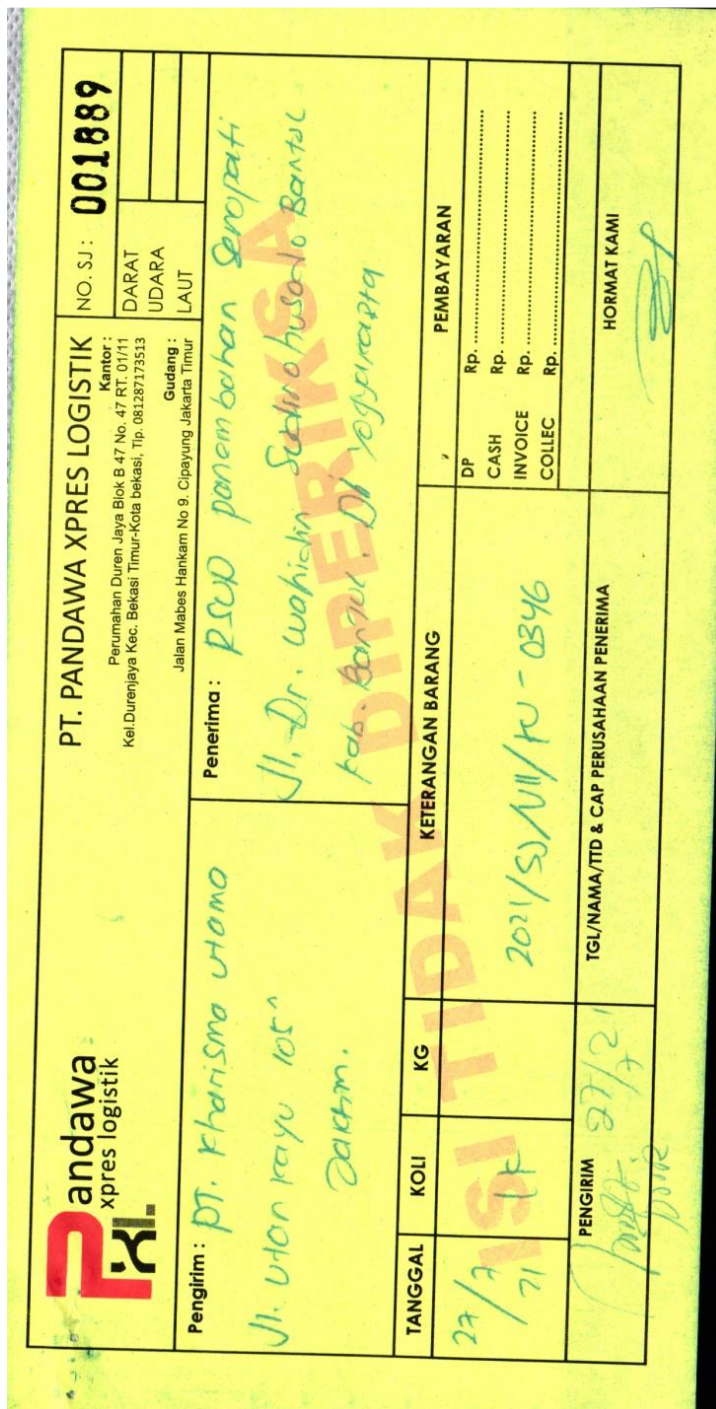 Pandawa
xpres logistik
PXL
PT. PANDAWA XPRES LOGISTIK
Kantor :
Perumahan Duren Jaya Blok B 47 No. 47 RT. 01/11
Kel.Durenjaya Kec. Bekasi Timur-Kota bekasi, Tlp. 081287173513
Gudang :
Jalan Mabes Hankam No 9. Cipayung Jakarta Timur
NO. SJ : 001889
DARAT
UDARA
LAUT
Pengirim : PT. Kharisma Utama
Jl. Utan Kayu 105^
Jaktim.
Penerima : RSUD panembahan Senopati
Jl. Dr. Wahidin Sudirohusodo Bantul
Kab. Bantul. DI Yogyakarta
TANGGAL KOLI KG KETERANGAN BARANG PEMBAYARAN
27/7 21 1K 2021/SJ/VII/KU - 0346
DP Rp.
CASH Rp.
INVOICE Rp.
COLLEC Rp.
ISI TIDAK DIPERIKSA
PENGIRIM TGL/NAMA/TTD & CAP PERUSAHAAN PENERIMA HORMAT KAMI
27/7 21